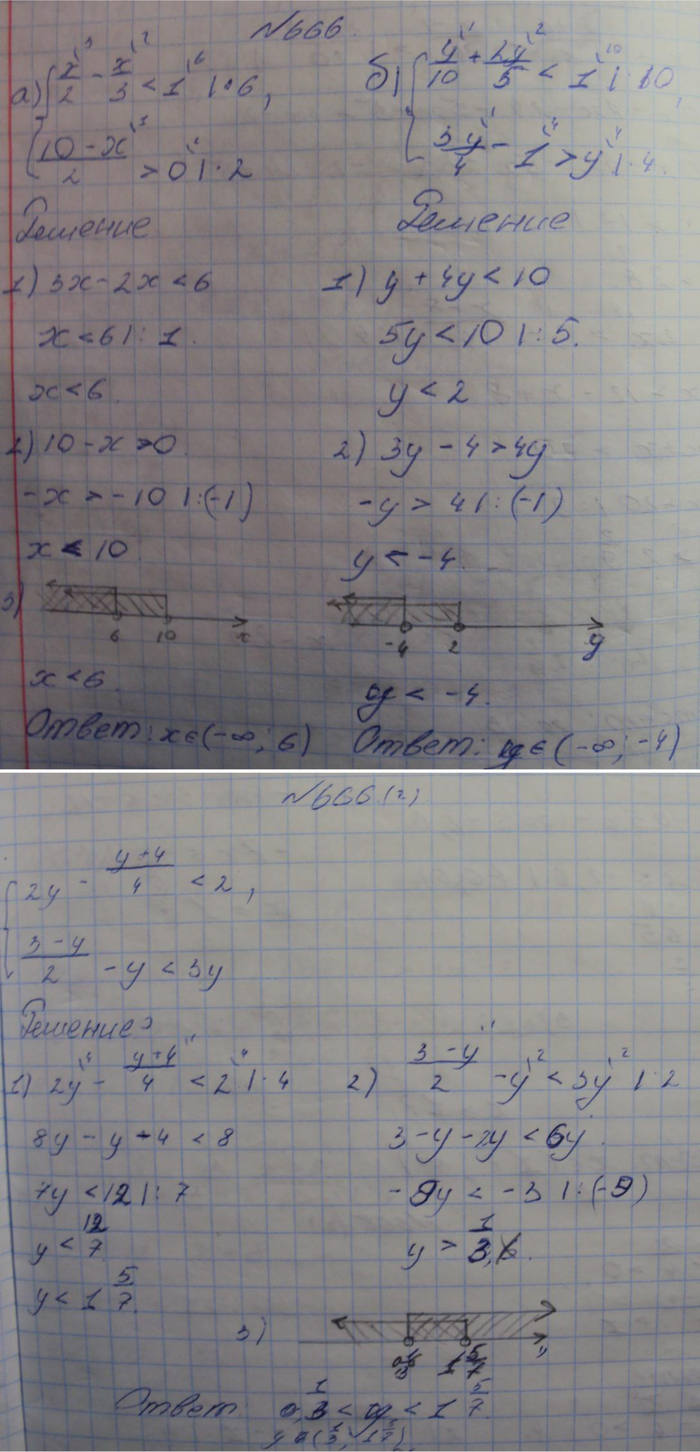 №666.
а) { x/2 \3 - x/3 \2 < 1 \6 |·6,
{ (10-x)/2 \1 > 0 |·2
Решение
1) 3x-2x<6
x<6|:1.
x<6.
2) 10-x>0
-x>-10 |:(-1)
x<10
3)
6 10 x
x<6.
Ответ: x∈(-∞; 6)
б) { y/10 \1 + 2y/5 \2 < 1 \10 |·10,
{ 3y/4 \1 - 1 \4 > y \4 |·4.
Решение
1) y+4y<10
5y<10 |:5.
y<2
2) 3y-4>4y
-y>4|:(-1)
y<-4.
-4 2 y
y<-4.
Ответ: y∈(-∞; -4)
№666(2)
{ 2y - (y+4)/4 < 2,
{ (3-y)/2 - y < 3y
Решение:
1) 2y \4 - (y+4)/4 \1 < 2 \4 |·4
8y-y+4<8
7y<12|:7
y<12/7
y<1 5/7.
2) (3-y)/2 \1 - y \2 < 3y \2 |·2
3-y-2y<6y.
-9y<-3 |:(-9)
y>1/3.
3)
1 5/7
Ответ 1/3<y<1 5/7.
y∈(1/3; 1 5/7)